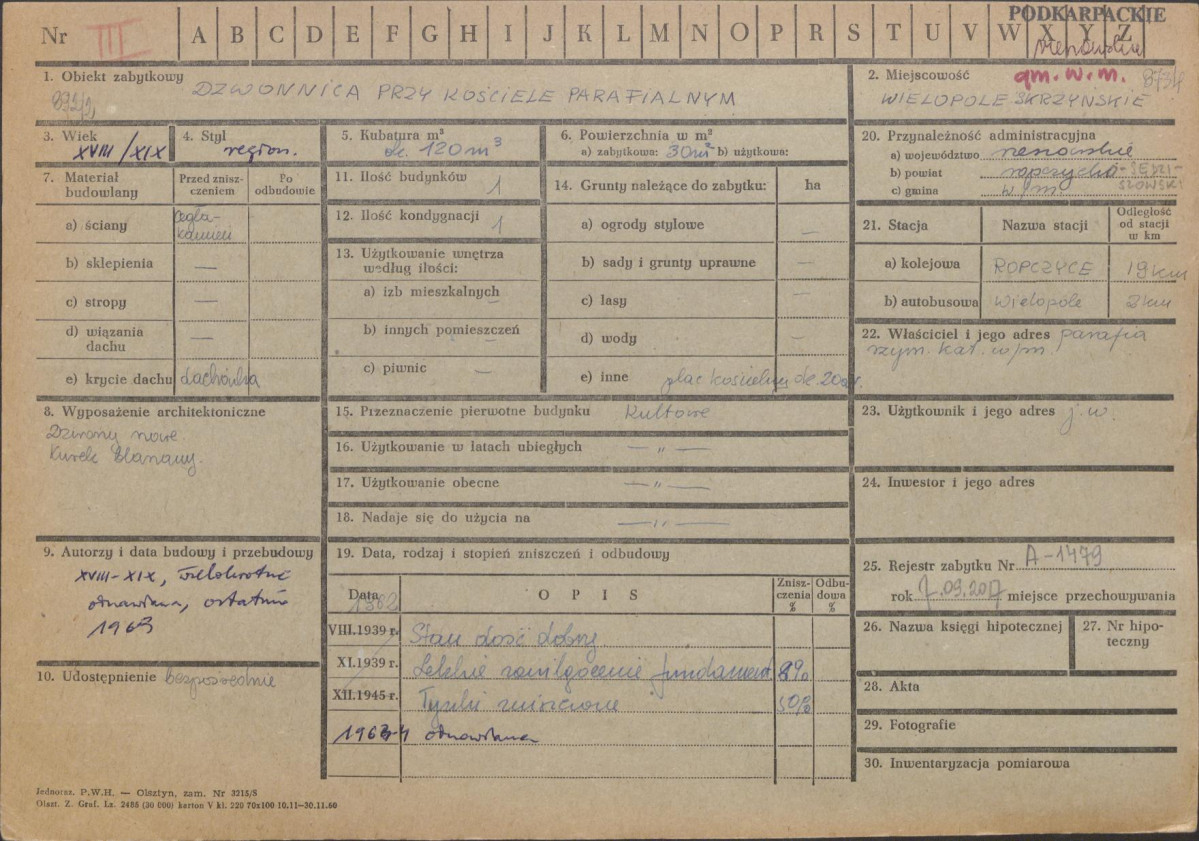 PODKARPACKIE
Nr III A B C D E F G H I J K L M N O P R S T U V W X Y Z
rzeszowskie
1. Obiekt zabytkowy
DZWONNICA PRZY KOŚCIELE PARAFIALNYM
2. Miejscowość gm. w.m.
WIELOPOLE SKRZYŃSKIE
3. Wiek
XVIII/XIX
4. Styl
region.
5. Kubatura m³
ok. 120 m³
6. Powierzchnia w m²
a) zabytkowa: 30 m² b) użytkowa:
7. Materiał budowlany
Przed znisz-
czeniem
Po
odbudowie
a) ściany cegła-
kamień
b) sklepienia —
c) stropy —
d) wiązania
dachu —
e) krycie dachu dachówka
8. Wyposażenie architektoniczne
Dzwony nowe
Kurek blaszany.
9. Autorzy i data budowy i przebudowy
XVIII-XIX, wielokrotnie
odnawiana, ostatnio
1963
10. Udostępnienie bezpośrednie
11. Ilość budynków 1
12. Ilość kondygnacji 1
13. Użytkowanie wnętrza
według ilości:
a) izb mieszkalnych —
b) innych pomieszczeń —
c) piwnic —
14. Grunty należące do zabytku: ha
a) ogrody stylowe —
b) sady i grunty uprawne —
c) lasy —
d) wody —
e) inne plac kościelny ok. 20 ar.
15. Przeznaczenie pierwotne budynku kultowe
16. Użytkowanie w latach ubiegłych — „ —
17. Użytkowanie obecne — „ —
18. Nadaje się do użycia na — „ —
19. Data, rodzaj i stopień zniszczeń i odbudowy
Data
1962
OPIS
Znisz-
czenia
%
Odbu-
dowa
%
VIII.1939 r. Stan dość dobry
XI.1939 r. Lekkie zawilgocenie fundament. 8%
XII.1945 r. Tynki zniszczone 50%
1963-4 odnawiana
20. Przynależność administracyjna
a) województwo rzeszowskie
b) powiat ropczycko-SĘDZI-
SZOWSKI
c) gmina w/m
21. Stacja
Nazwa stacji
Odległość
od stacji
w km
a) kolejowa ROPCZYCE 19 km
b) autobusowa Wielopole
22. Właściciel i jego adres parafia
rzym. kat. w/m.
23. Użytkownik i jego adres j.w.
24. Inwestor i jego adres
25. Rejestr zabytku Nr A-1479
rok 7.09.2017 miejsce przechowywania
26. Nazwa księgi hipotecznej
27. Nr hipo-
teczny
28. Akta
29. Fotografie
30. Inwentaryzacja pomiarowa
Jednoraz. P.W.H. — Olsztyn, zam. Nr 3215/S
Olszt. Z. Graf. Lz. 2486 (30 000) karton V kl. 220 70x100 10.11—30.11.60